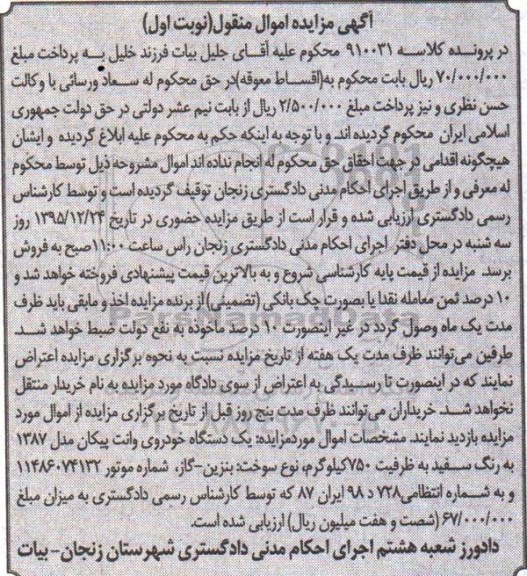 آگهی مزایده اموال منقول(نوبت اول)
در پرونده کلاسه ۹۱۰۰۳۱ محکوم علیه آقای جلیل بیات فرزند خلیل به پرداخت مبلغ
۷۰/۰۰۰/۰۰۰ ریال بابت محکوم به(اقساط معوقه)در حق محکوم له سعاد ورسائی با وکالت
حسن نظری و نیز پرداخت مبلغ ۲/۵۰۰/۰۰۰ ریال از بابت نیم عشر دولتی در حق دولت جمهوری
اسلامی ایران محکوم گردیده اند و با توجه به اینکه حکم به محکوم علیه ابلاغ گردیده و ایشان
هیچگونه اقدامی در جهت احقاق حق محکوم له انجام نداده اند اموال مشروحه ذیل توسط محکوم
له معرفی و از طریق اجرای احکام مدنی دادگستری زنجان توقیف گردیده است و توسط کارشناس
رسمی دادگستری ارزیابی شده و قرار است از طریق مزایده حضوری در تاریخ ۱۳۹۵/۱۲/۲۴ روز
سه شنبه در محل دفتر اجرای احکام مدنی دادگستری زنجان راس ساعت ۱۱:۰۰صبح به فروش
برسد. مزایده از قیمت پایه کارشناسی شروع و به بالاترین قیمت پیشنهادی فروخته خواهد شد و
۱۰ درصد ثمن معامله نقدا یا بصورت چک بانکی (تضمینی) از برنده مزایده اخذ و مابقی باید ظرف
مدت یک ماه وصول گردد در غیر اینصورت ۱۰ درصد ماخوذه به نفع دولت ضبط خواهد شد.
طرفین می‌توانند ظرف مدت یک هفته از تاریخ مزایده نسبت به نحوه برگزاری مزایده اعتراض
نمایند که در اینصورت تا رسیدگی به اعتراض از سوی دادگاه مورد مزایده به نام خریدار منتقل
نخواهد شد. خریداران می‌توانند ظرف مدت پنج روز قبل از تاریخ برگزاری مزایده از اموال مورد
مزایده بازدید نمایند. مشخصات اموال موردمزایده: یک دستگاه خودروی وانت پیکان مدل ۱۳۸۷
به رنگ سفید به ظرفیت ۷۵۰کیلوگرم، نوع سوخت: بنزین-گاز، شماره موتور ۱۱۴۸۶۰۷۴۱۳۲
و به شماره انتظامی۷۲۸ د ۹۸ ایران ۸۷ که توسط کارشناس رسمی دادگستری به میزان مبلغ
۶۷/۰۰۰/۰۰۰ (شصت و هفت میلیون ریال) ارزیابی شده است.
دادورز شعبه هشتم اجرای احکام مدنی دادگستری شهرستان زنجان- بیات
ParsNamadData